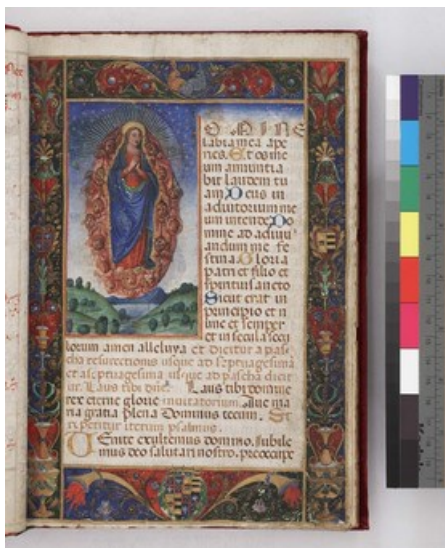 DOMINE
labia mea ape
ries. Et os me
um annuntia
bit laudem tu
am Deus in
adiutorium me
um intende Do
mine ad adiuu
andum me fe
stina Gloria
patri et filio et
spiritui sancto
Sicut erat in
principio et n
unc et semper
et in secula secu
lorum amen alleluya et dicitur a pas
cha resurectionis usque ad septuagesima
et a septuagesima usque ad pascha dicit
ur. Laus tibi dne. Laus tibi domine
rex eterne glorie inuitatorium. Aue ma
ria gratia plena Dominus tecum. Et
repetitur iterum psalmus.
VEnite exultemus domino, Iubile
mus deo salutari nostro, preoccupe